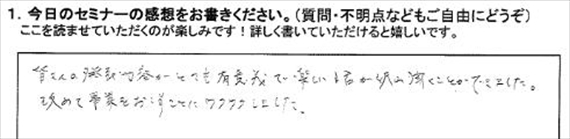 1. 今日のセミナーの感想をお書きください。(質問・不明点などもご自由にどうぞ)
ここを読ませていただくのが楽しみです!詳しく書いていただけると嬉しいです。
皆さんの発表内容がとても有意義で楽しい話が聞くことができました。
改めて事業をおすことにワクワクしました。